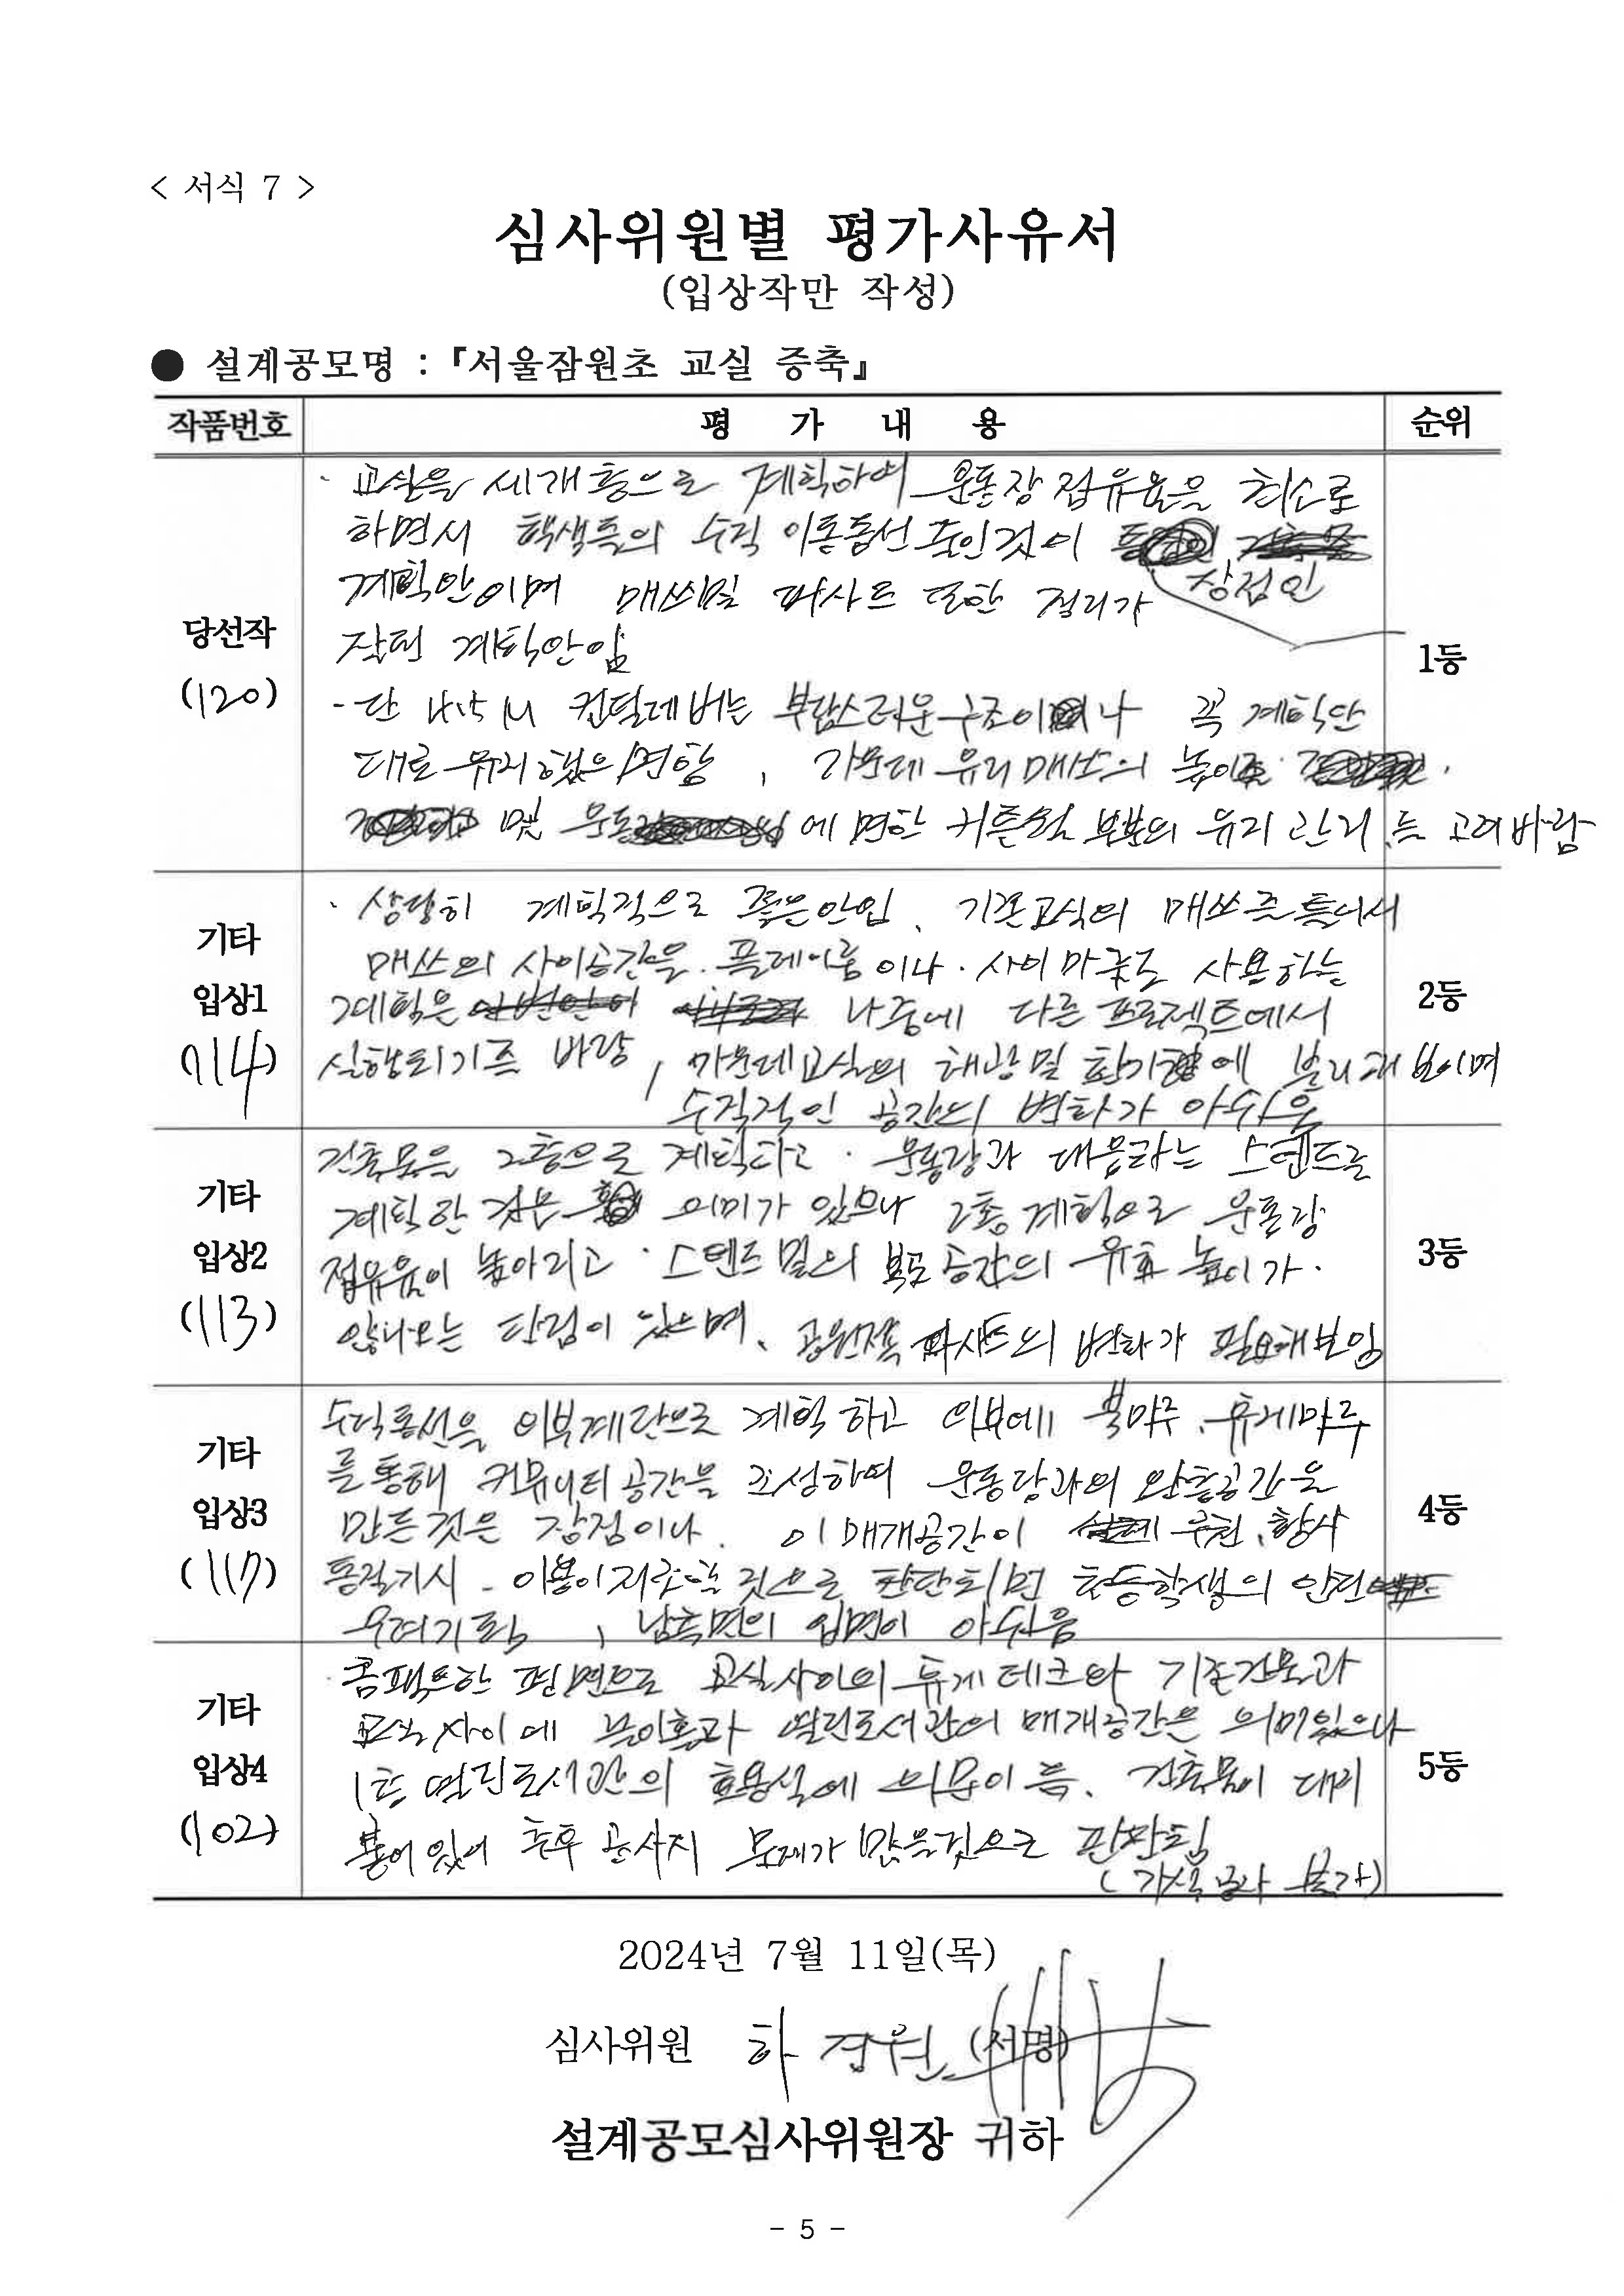 < 서식 7 >
심사위원별 평가사유서
(입상작만 작성)
● 설계공모명 : 『서울잠원초 교실 증축』
작품번호 평 가 내 용 순위
당선작
(120)
· 교실을 세개층으로 계획하여 운동장 점유율을 최소로
하면서 학생들의 수직 이동동선 줄인것이
장점인
계획안이며 매쓰및 파사드 또한 정리가
잘된 계획안임
- 단 4.5 M 컨틸레버는 부담스러운 구조이나 꼭 계획안
대로 유지했으면함, 가운데 유리매쓰의 높이
및 운동 에 면한 커튼월 부분의 유지 관리 등 고려바람
1등
기타
입상1
(114)
· 상당히 계획적으로 좋은안임, 기존교실의 매쓰
매쓰의 사이공간을 플레이룸이나 · 사이마당으로 사용하는
계획은 나중에 다른 프로젝트에서
실행되기를 바람, 가운데교실의 채광 및 환기 에 불리해 보이며
수직적인 공간의 변화가 아쉬움
2등
기타
입상2
(113)
건축물을 2층으로 계획하고 · 운동장과 대응하는 스탠드를
계획한 것은 의미가 있으나 2층 계획으로 운동장
점유율이 높아지고 · 스탠드 밑의 복도공간의 유효 높이가
않나오는 단점이 있으며, 공원쪽 파사드의 변화가 필요해보임
3등
기타
입상3
(117)
수직동선을 외부계단으로 계획하고 외부에 북마루, 휴게마루
를 통해 커뮤니티공간을 조성하여 운동장과의 완충공간을
만든것은 장점이나, 이 매개공간이 우천, 황사
동절기시 - 이용이 저조할 것으로 판단되며 초등학생의 안전
우려가 됨, 남측면의 입면이 아쉬움
4등
기타
입상4
(102)
· 콤팩트한 평면으로 교실사이의 휴게데크와 기존건물과
교실 사이에 놀이홀과 열린도서관의 매개공간은 의미있으나
1층 열린도서관의 효용성에 의문이 듬. 건축물이 대지
붙어있어 추후 공사시 문제가 많을것으로 판단됨
5등
2024년 7월 11일(목)
심사위원 하 경원 (서명)
설계공모심사위원장 귀하
- 5 -